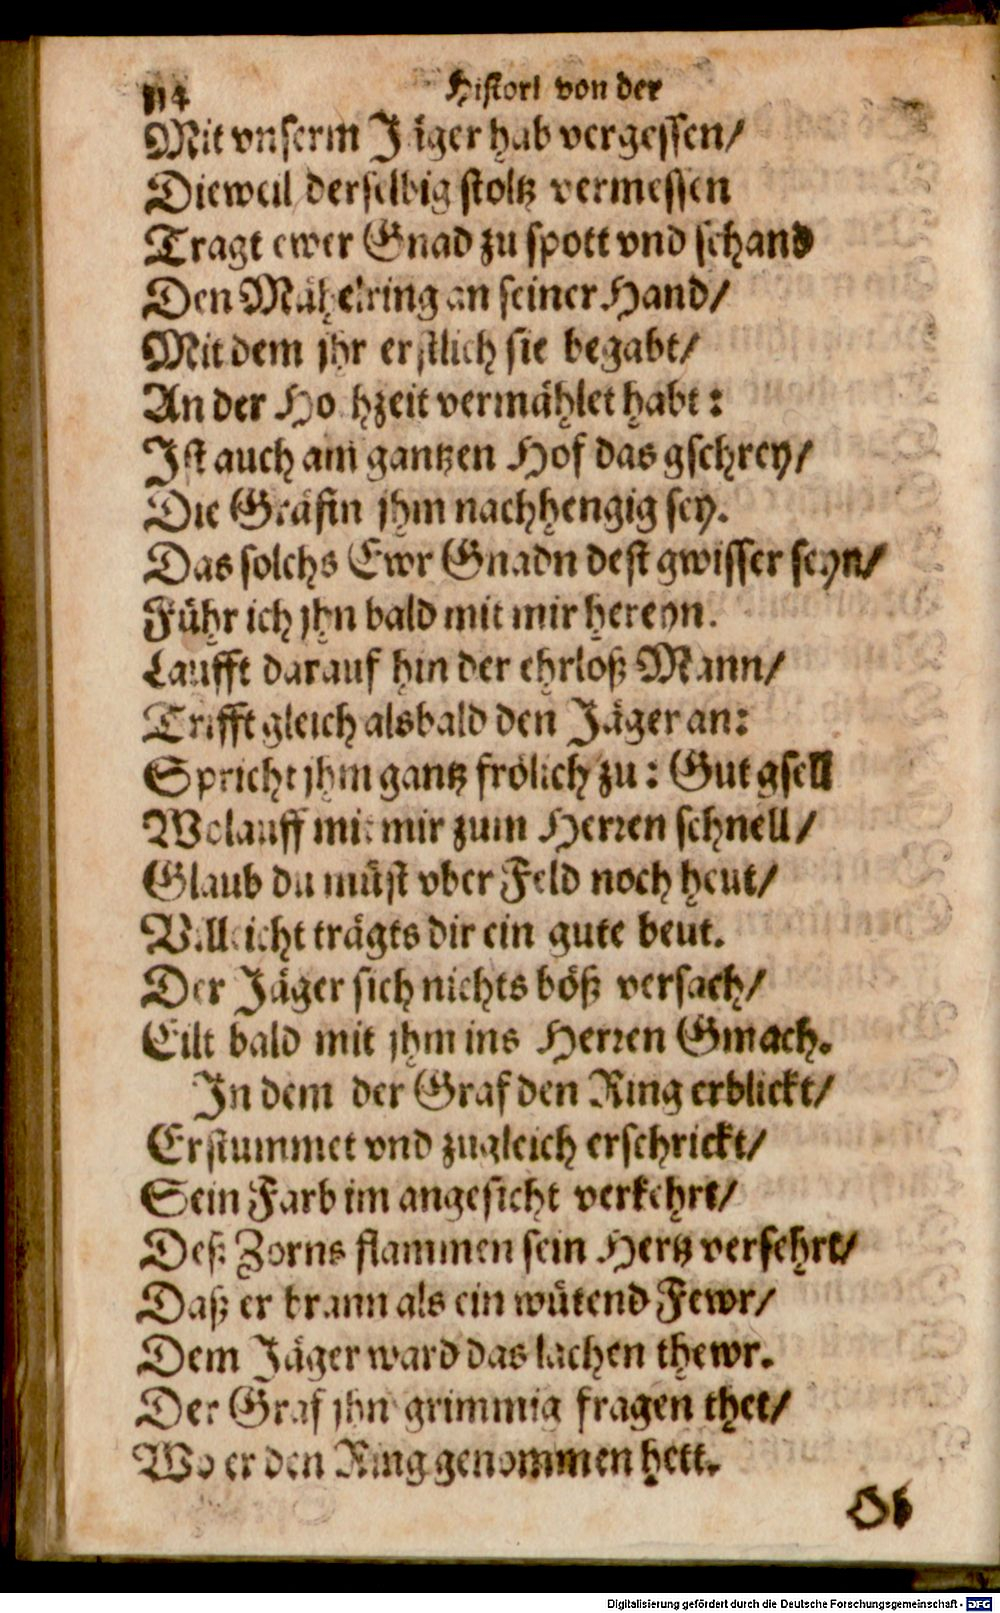 114 Histori von der
Mit vnserm Jäger hab vergessen/
Dieweil derselbig stoltz vermessen
Tragt ewer Gnad zu spott vnd schand
Den Mähelring an seiner Hand/
Mit dem jhr erstlich sie begabt/
An der Hochzeit vermählet habt:
Jst auch am gantzen Hof das gschrey/
Die Gräfin jhm nachhengig sey.
Das solchs Ewr Gnadn dest gwisser seyn/
Führ ich jhn bald mit mir hereyn.
Laufft darauf hin der ehrloß Mann/
Trifft gleich alsbald den Jäger an:
Spricht jhm gantz frölich zu: Gut gsell
Wolauff mit mir zum Herren schnell/
Glaub du müst vber Feld noch heut/
Villeicht trägts dir ein gute beut.
Der Jäger sich nichts böß versach/
Eilt bald mit jhm ins Herren Gmach.
Jn dem der Graf den Ring erblickt/
Erstummet vnd zugleich erschrickt/
Sein Farb im angesicht verkehrt/
Deß Zorns flammen sein Hertz versehrt/
Daß er brann als ein wütend Fewr/
Dem Jäger ward das lachen thewr.
Der Graf jhn grimmig fragen thet/
Wo er den Ring genommen hett.
Ob
Digitalisierung gefördert durch die Deutsche Forschungsgemeinschaft - DFG